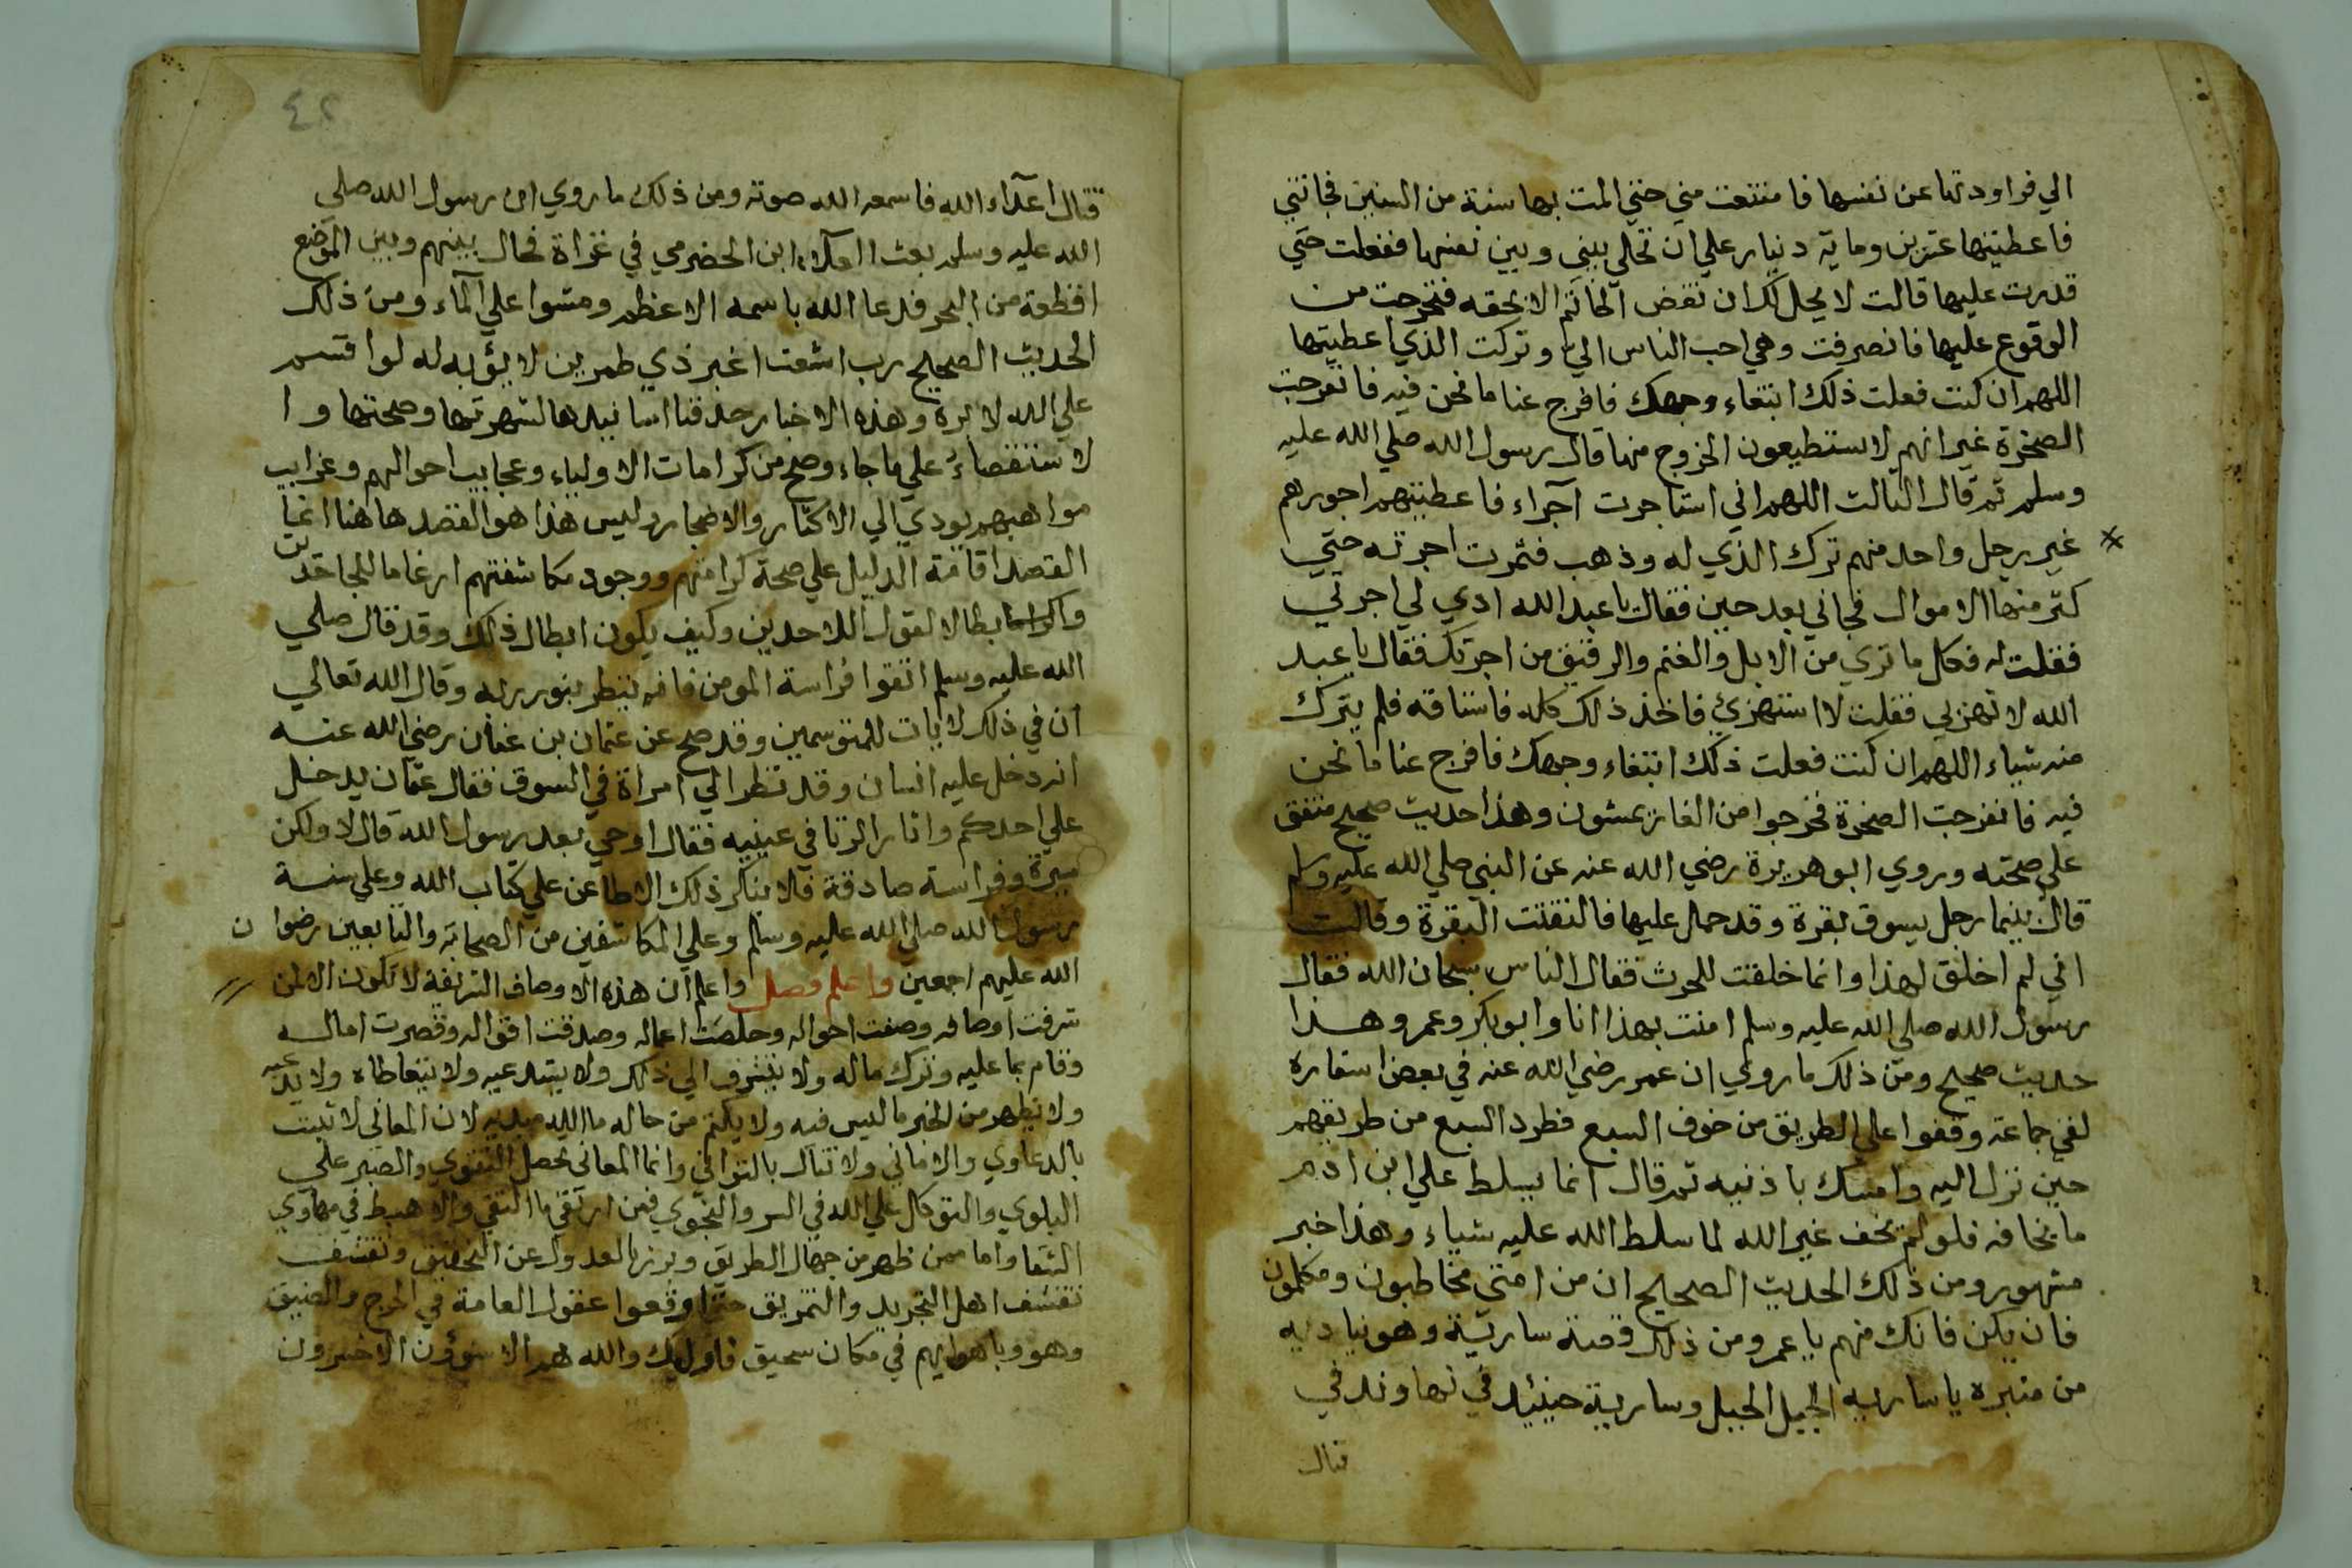 الي فراودتها عن نفسها فامتنعت مني حتي المت بها سنة من السنين فجاتني
فاعطيتها عشرين وماية دينار علي ان تخلي بيني وبين نفسها ففعلت حتي
قدرت عليها قالت لا يحل لك ان تفض الخاتم الا بحقه فتحرجت من
الوقوع عليها فانصرفت وهي احب الناس الي وتركت الذي اعطيتها
اللهم ان كنت فعلت ذلك ابتغاء وجهك فافرج عنا ما نحن فيه فانفرجت
الصخرة غير انهم لا يستطيعون الخروج منها قال رسول الله صلي الله عليه
وسلم ثم قال الثالث اللهم اني استاجرت اجراء فاعطيتهم اجورهم
غير رجل واحد منهم ترك الذي له وذهب فثمرت اجرته حتي
كثر منها الاموال فجاني بعد حين فقال يا عبد الله ادي لي اجرتي
فقلت له فكل ما تري من الابل والغنم والرقيق من اجرتك فقال يا عبد
الله لا تهزبي فقلت لا استهزئ فاخذ ذلك كله فاستاقه فلم يترك
منه شياء اللهم ان كنت فعلت ذلك ابتغاء وجهك فافرج عنا ما نحن
فيه فانفرجت الصخرة فخرجوا من الغار يمشون وهذا حديث صحيح متفق
علي صحته وروي ابو هريرة رضي الله عنه عن النبي صلي الله عليه وسلم
قال بينما رجل يسوق بقرة وقد حمل عليها فالتفتت البقرة وقالت
اني لم اخلق لهذا وانما خلقت للحرث فقال الناس سبحان الله فقال
رسول الله صلي الله عليه وسلم امنت بهذا انا وابو بكر وعمر وهذا
حديث صحيح ومن ذلك ما روي ان عمر رضي الله عنه في بعض اسفاره
لقي جماعة وقفوا علي الطريق من خوف السبع فطرد السبع من طريقهم
حين نزل اليه وامسك باذنيه ثم قال انما يسلط علي ابن ادم
ما يخافه فلو لم يخف غير الله لما سلط الله عليه شياء وهذا خبر
مشهور ومن ذلك الحديث الصحيح ان من امتي مخاطبون ومكلمون
فان يكن فانك منهم يا عمر ومن ذلك قصة سارية وهو نياديه
من منبره يا ساريه الجبل الجبل وسارية حينئيد في نهاوند في
قتال
٤٢
قتال اعداء الله فاسمعه الله صوته ومن ذلك ما روي ان رسول الله صلي
الله عليه وسلم بعث العلاء ابن الحضرمي في غزاة فحال بينهم وبين الموضع
اقطعة من البحر فدعا الله باسمه الاعظم ومشوا علي الماء ومن ذلك
الحديث الصحيح رب اشعت اغبر ذي طمرين لا يؤبه له لو اقسم
علي الله لابره وهذه الاخبار حذفنا اسانيدها لشهرتها وصحتها وا
لاستقصاء علي ما جاء وصح من كرامات الاولياء وعجايب احوالهم وغرايب
مواهبهم يودي الي الاكثار والاضجار وليس هذا هو القصد هاهنا انما
القصد اقامة الدليل علي صحة كرامتهم ووجود مكاشفتهم ارغاما للجاحدين
ابطالا لقول اللاحدين وكيف يكون ابطال ذلك وقد قال صلي
الله عليه وسلم اتقوا فراسة المومن فانه ينظر بنور ربه وقال الله تعالي
ان في ذلك لايات للمتوسمين وقد صح عن عثمان بن عفان رضي الله عنه
انه دخل عليه انسان وقد نظر الي امراة في السوق فقال عثمان يدخل
علي احدكم واثار الزنا في عينيه فقال اوحي بعد رسول الله قال لا ولكن
وفراسة صادقة فلا ينكر ذلك الا طاعن علي كتاب الله وعلي سنة
رسول الله صلي الله عليه وسلم وعلي المكاشفين من الصحابة والتابعين رضوا ن
الله عليهم اجمعين واعلم فصل واعلم ان هذه الاوصاف الشريفة لا تكون الا لمن
شرفت اوصافه وصفت احواله وخلصت اعماله وصدقت اقواله وقصرت اماله
وقام بما عليه وترك ماله ولا يتشرف الي ذلك ولا يستدعيه ولا يتعاطاه ولا يدعيه
ولا يظهر من الخير ما ليس فيه ولا يكتم من حاله ما الله مبديه لان المعاني لا تثبت
بالدعاوي والاماني ولا تنال بالتواني وانما المعاني تحصل التقوي والصبر علي
البلوي والتوكال علي الله في السر والنجوي فمن ارتقي ما التقي والا هبط في مهاوي
الشقا واما ممن ظهر من جهال الطريق وبرز بالعدول عن التحقيق وتقشف
تقشف اهل التجريد والتمزيق حتي اوقعوا عقول العامة في الحرج والضيق
وهووا باهوايهم في مكان سحيق فاوليك والله هم الاسوؤن الاخسرون